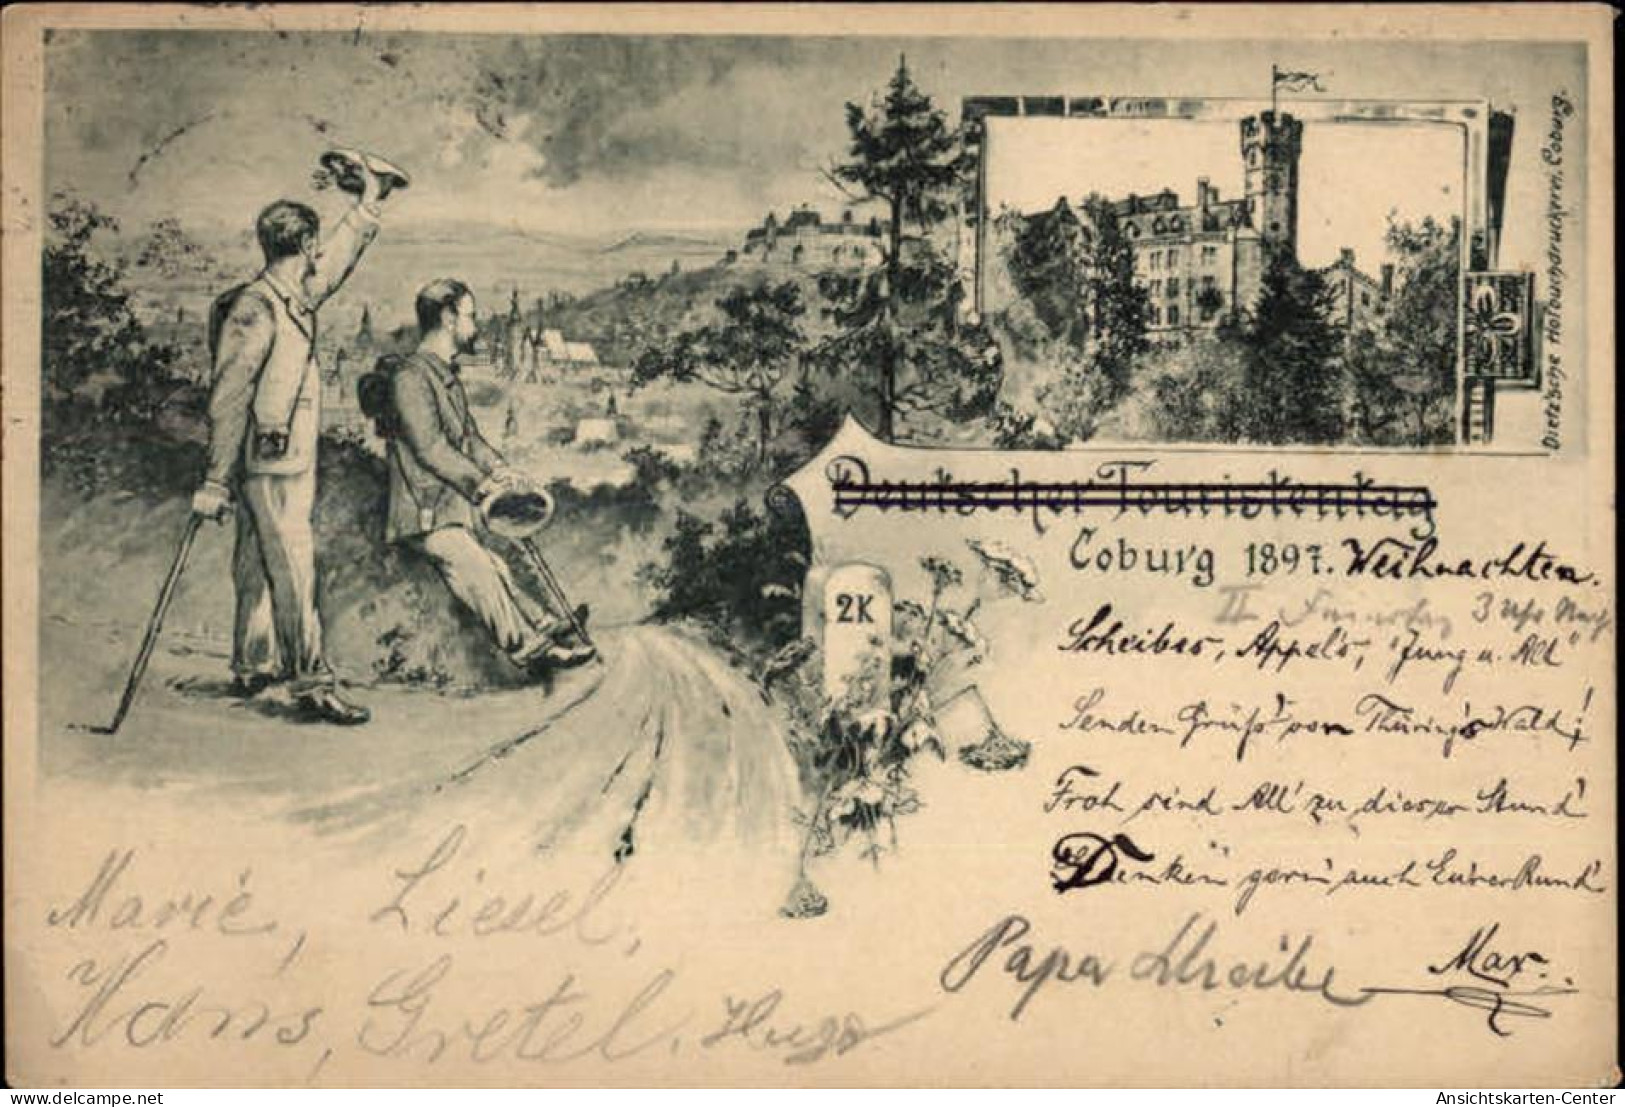 Dietz'sche Hofbuchdruckerei, Coburg.
Deutscher Touristentag
Coburg 1897. Weihnachten.
II 3 Uhr
2K
Scheibes, Appel's, "Jung u. Alt"
Senden Grüß' vom Thüring's Wald!
Froh sind All' zu dieser Stund'
Denken gern auch Eurer Rund'
Marie, Liesel,
Papa Scheibe Max.
Hans, Gretel. Hugo
delcampe.net
Ansichtskarten-Center